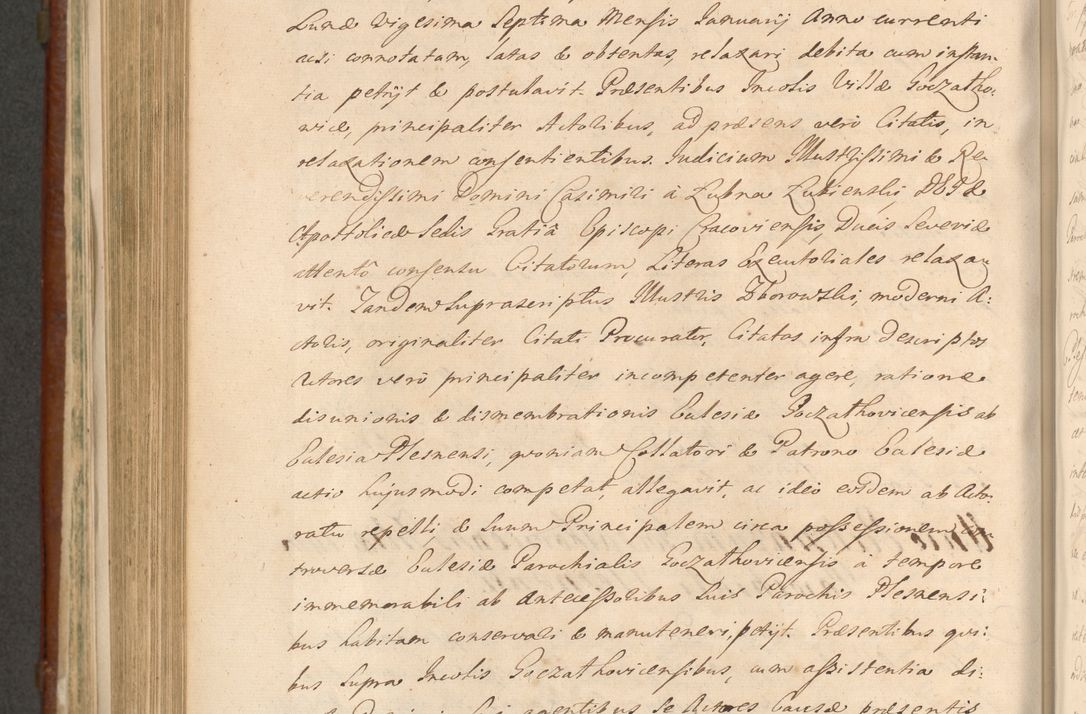 Lunæ Vigesima Septima Mensis Januarij Anno currenti
acsi connotatam, latas & obtentas, relaxari debita cum instan-
tia petijt & postulavit. Præsentibus Incolis Villæ Goczałko-
vicæ, principaliter Actoribus, ad præsens verò Citatis, in
relaxationem consentientibus. Judicium Illustrissimi & Re-
verendissimi Domini Casimiri à Łubna Łubieński, D G &
Apostolicæ Sedis Gratiâ Episcopi Cracoviensis, Ducis Severiæ
attentô consensu Citatorum, Literas Executoriales relaxa-
vit. Tandem Suprascriptus Illustris Zborowski, moderni A:
ctoris, originaliter Citati Procurator, Citatos infra descriptos
Actores verò principaliter incompetenter agere, ratione
disunionis & dismembrationis Ecclesiæ Goczałkovicensis ab
Ecclesia Plesnensi, quoniam Collatori & Patrono Ecclesiæ
actio hujusmodi competat, allegavit, ac ideò eosdem ab Acto-
ratu repelli & Suum Principalem circa possessionem con-
troversæ Ecclesiæ Parochialis Goczałkovicensis à tempore
immemorabili ab Antecessoribus Suis Parochis Plesnensi:
bus habitam conservari & manuteneri, petijt. Præsentibus qui:
bus Supra Incolis Goczałkovicensibus, cum assistentia di:
agentibus Se Actores Causæ præsentis